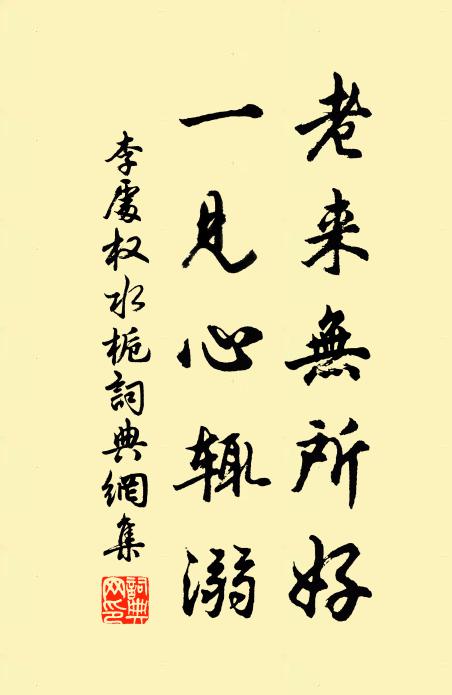 老来無所好
一見心辄溺
李處权水栀詞典網集
詞典网印